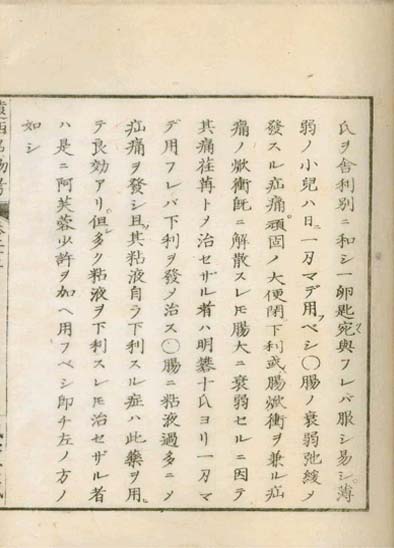 氏ヲ舎利別ニ和シ一卵匙宛與フレバ服シ易シ薄
弱ノ小兒ハ日ニ一刀マデ用フベシ〇腸ノ衰弱弛緩ヨリ
發スル疝痛頑固ノ大便閉下利或腸焮衝ヲ兼ル疝
痛ノ焮衝既ニ解散スレ𪜈腸大ニ衰弱セルニ因テ
其痛荏苒トメ治セザル者ハ明礬十氏ヨリ一刀マ
デ用フレバ下利ヲ發メ治ス〇腸ニ粘液過多ニメ
疝痛ヲ發シ且其粘液自ラ下利スル症ハ此藥ヲ用ヒ
テ良効アリ但多ク粘液ヲ下利スレ𪜈治セザル者
ハ是ニ阿芙蓉少許ヲ加ヘ用フベシ即チ左ノ方ノ
如シ
遠西名物考